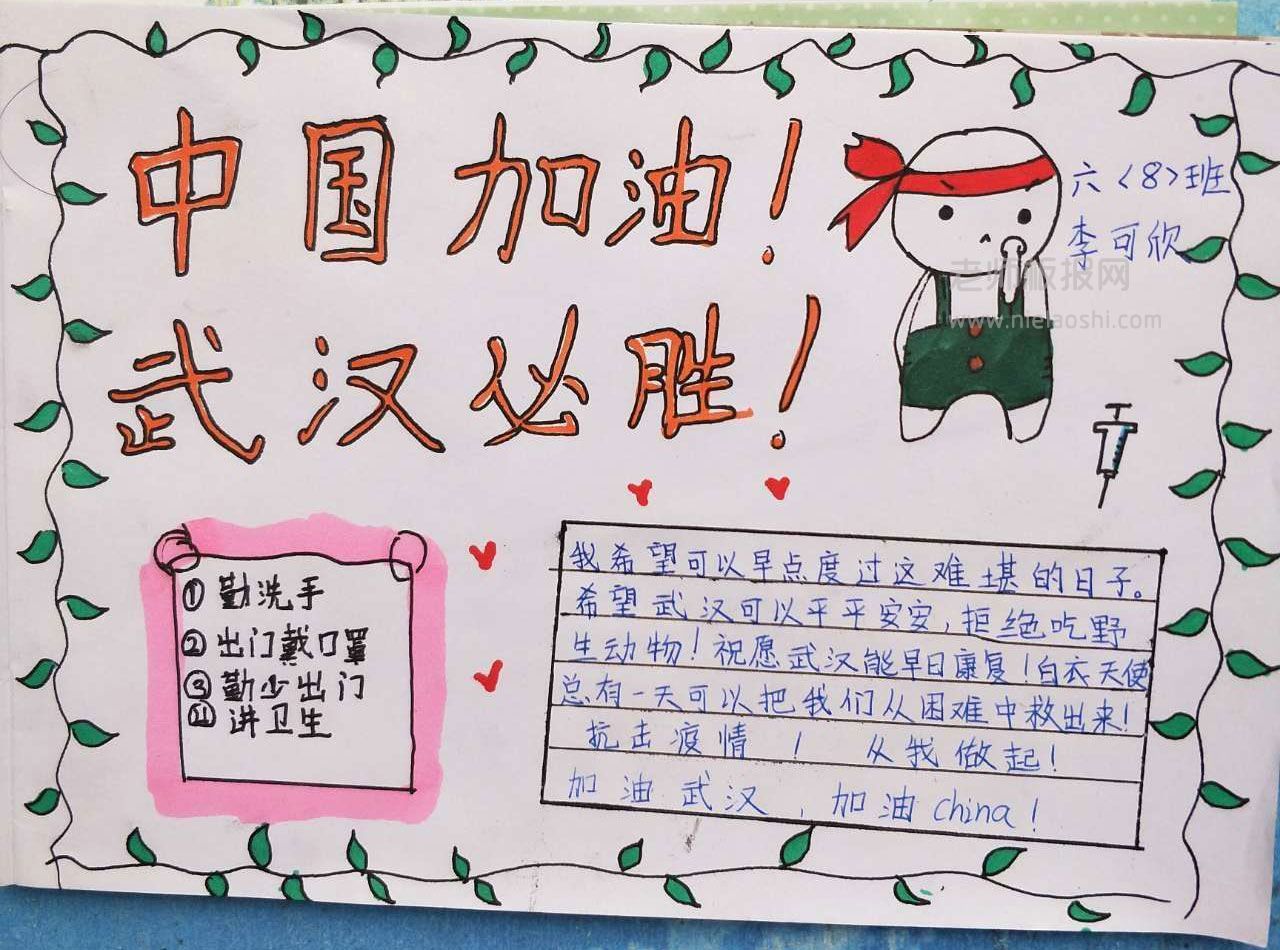 中国加油！
六〈8〉班
李可欣
老师板报网
www.nielaoshi.com
武汉必胜！
① 勤洗手
② 出门戴口罩
③ 勤少出门
④ 讲卫生
我希望可以早点度过这难堪的日子。
希望武汉可以平平安安，拒绝吃野
生动物！祝愿武汉能早日康复！白衣天使
总有一天可以把我们从困难中救出来！
抗击疫情！从我做起！
加油武汉，加油china！